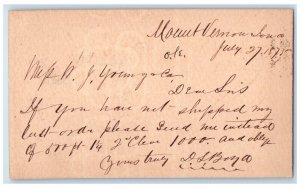 Mount Vernon Iowa
July 27 1875
W. J. Young & Co
Dear Sirs
If you have not shipped my
last order please send me instead
of 500 ft 1¼ 2d Clear 1000. and oblige
Yours truly D L Boyd